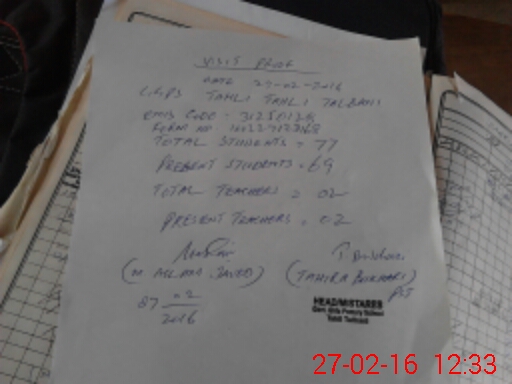 VISIT PROOF
DATE 27-02-2016
G.G.P.S TAHLI TAHLI TALBANI
EMIS CODE = 31250128
FORM NO
TOTAL STUDENTS = 77
PRESENT STUDENTS = 69
TOTAL TEACHERS = 02
PRESENT TEACHERS = 02
(M ASLAM JAVED) (TAHIRA BUKHARI)
PST
02
2016
HEAD/MISTARES
Govt. Girls Primary School
27-02-16 12:33